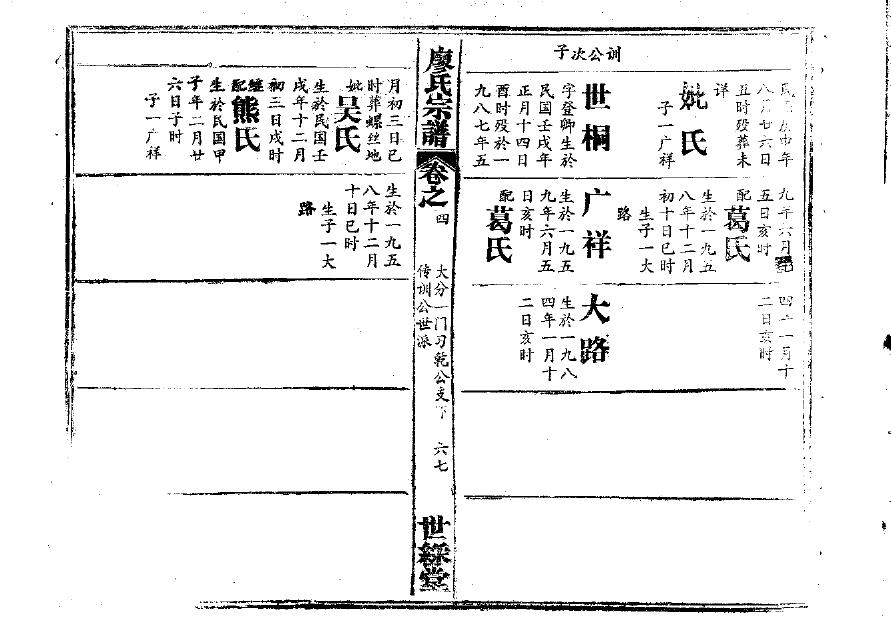 训公次子
八月廿六日
五时殁葬未
详
妣氏
子一广祥
世桐
字登卿生於
民国壬戌年
正月十四日
酉时殁於一
九八七年五
九年六月
五日亥时
配
葛氏
生於一九五
八年十二月
初十日巳时
生子一大
路
广祥
生於一九五
九年六月五
日亥时
配
葛氏
四年一月十
二日亥时
大路
生於一九八
四年一月十
二日亥时
廖氏宗譜
卷之四
大分一门习乾公支下
传训公世派
六七
世綵堂
月初三日已
时葬螺丝地
妣
吴氏
生於民国壬
戌年十二月
初三日戌时
继配
熊氏
生於民国甲
子年二月廿
六日子时
子一广祥
生於一九五
八年十二月
十日巳时
生子一大
路